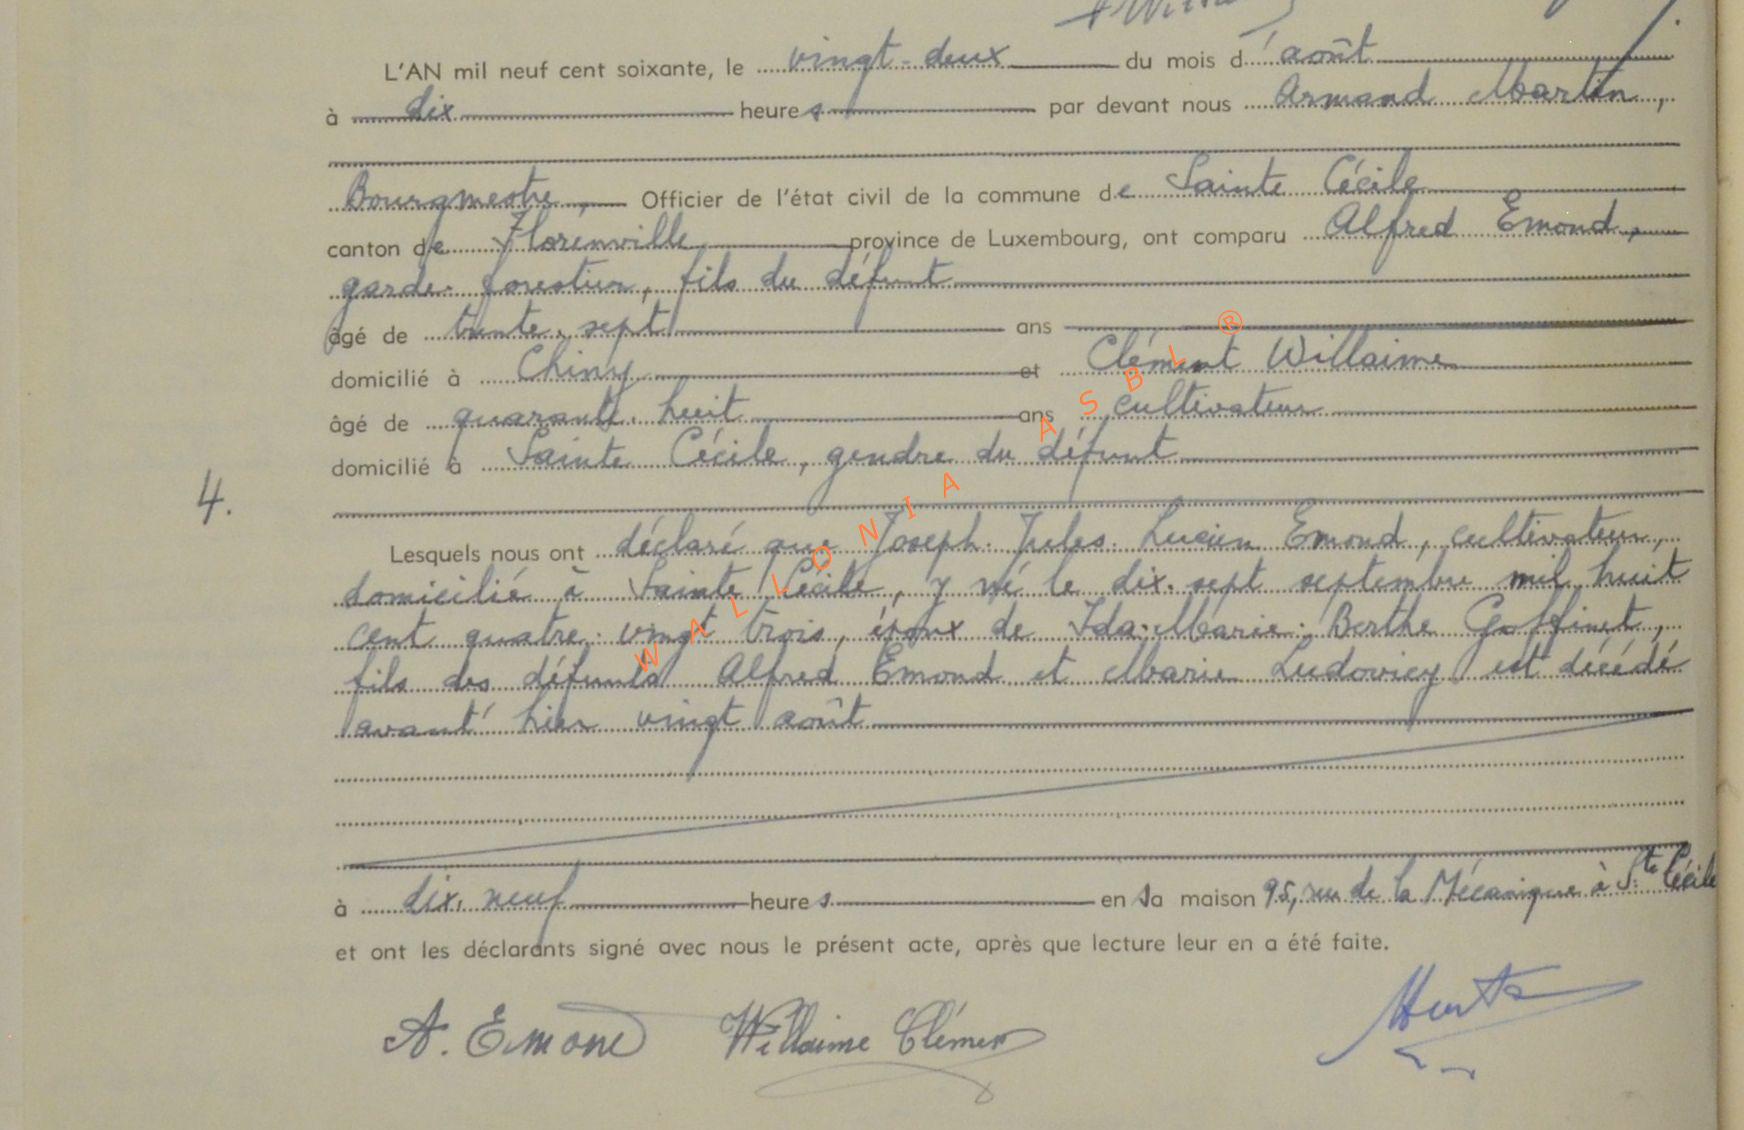 L'AN mil neuf cent soixante, le vingt-deux du mois d'août
à dix heures par devant nous Armand Martin,
Bourgmestre, Officier de l'état civil de la commune de Sainte Cécile
canton de Florenville province de Luxembourg, ont comparu Alfred Emond,
garde-forestier, fils du défunt
âgé de trente-sept ans
domicilié à Chiny et Clément Willaime
âgé de quarante-huit ans cultivateur
domicilié à Sainte Cécile, gendre du défunt
4.
Lesquels nous ont déclaré que Joseph-Jules-Lucien Emond, cultivateur,
domicilié à Sainte Cécile, y né le dix-sept septembre mil huit
cent quatre-vingt trois, époux de Ida-Marie-Berthe Goffinet,
fils des défunts Alfred Emond et Marie Ludovicy est décédé
avant hier vingt août
à dix-neuf heures en sa maison 95, rue de la Mécanique à Ste Cécile
et ont les déclarants signé avec nous le présent acte, après que lecture leur en a été faite.
A. Emond Willaime Clément
WALLONIA ASBL ®